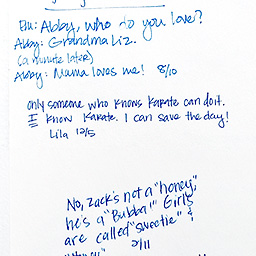 Em: Abby, who do you love?
Abby: Grandma Liz.
(a minute later)
Abby: Mama loves me! 8/10
only someone who knows karate can do it.
I know karate. I can save the day!
Lila 12/5
No, Zack's not a "honey,"
he's a "Bubba!" Girls
are called "sweetie" &
2/11